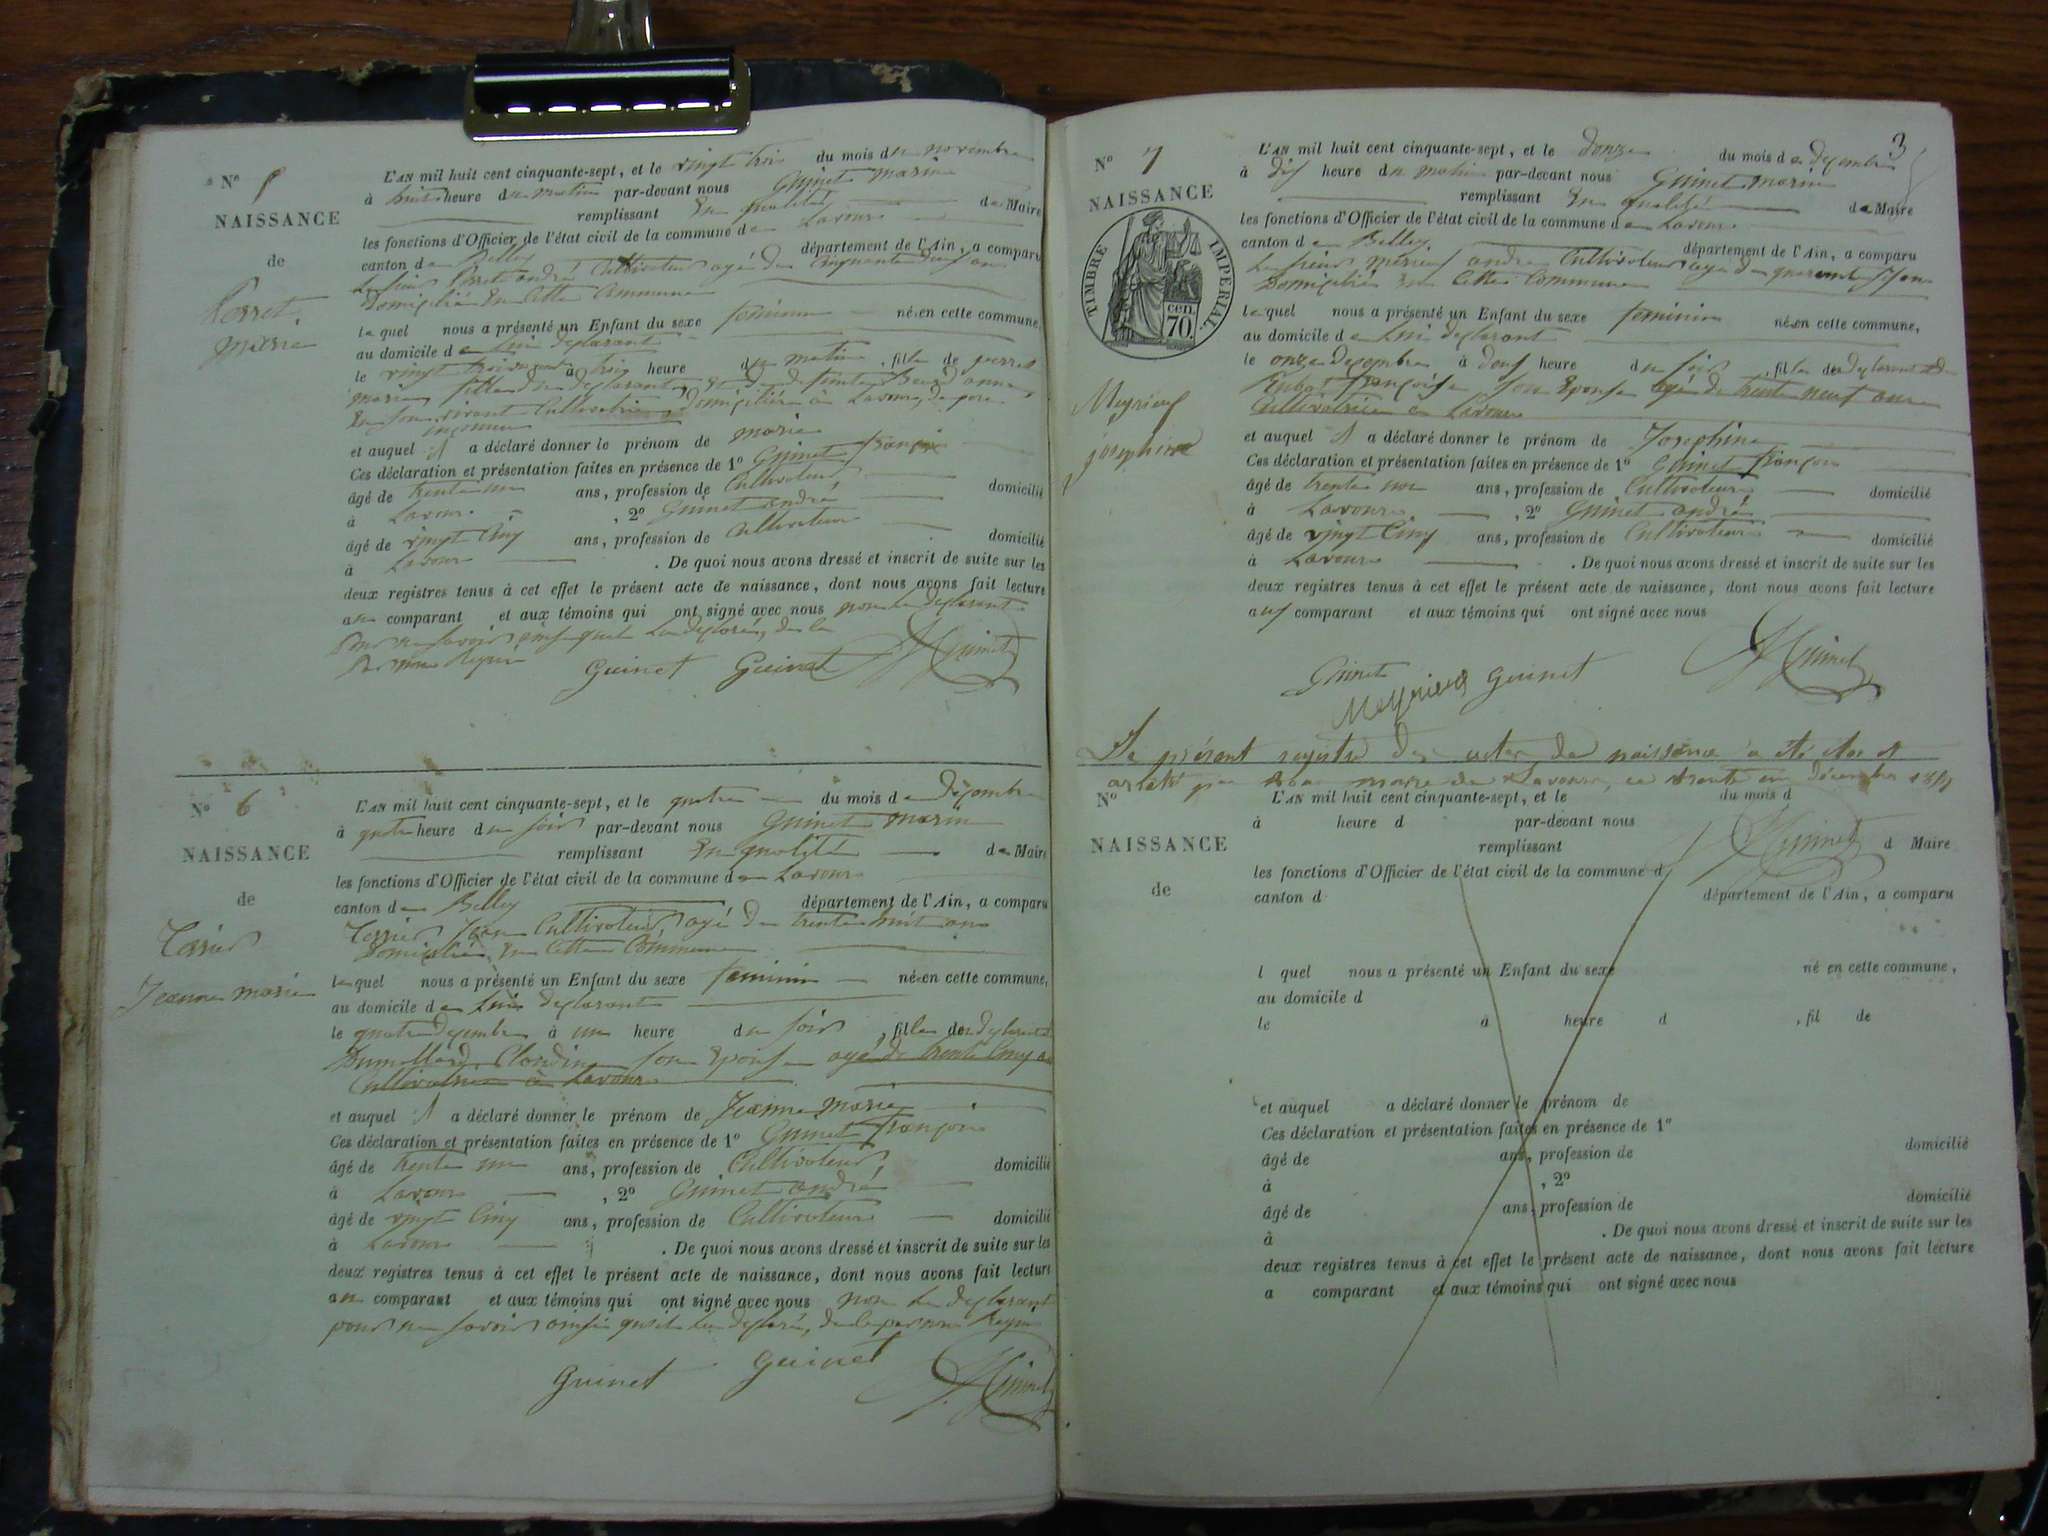 N° 5
NAISSANCE
de
Perret
marie
L'AN mil huit cent cinquante-sept, et le vingt trois du mois de novembre
à huit heure du matin par-devant nous Guinet marin
remplissant En qualité de Maire
les fonctions d'Officier de l'état civil de la commune de Lavours
canton de Belley département de l'Ain, a comparu
Le sieur Perret andré Cultivateur agé de Cinquante deux ans
Domicilié En Cette Commune
lequel nous a présenté un Enfant du sexe feminin née en cette commune,
au domicile de lui déclarant
le vingt trois à trois heure du matin, fille de perret
marie, fille du declarant, et de defunte anne
En son vivant Cultivatrice, domiciliée à Lavours, de pere
inconnu
et auquel il a déclaré donner le prénom de marie
Ces déclaration et présentation faites en présence de 1° Guinet françois
âgé de trente un ans, profession de Cultivateur domicilié
à Lavours, 2° Guinet andré
âgé de vingt Cinq ans, profession de Cultivateur domicilié
à Lavours. De quoi nous avons dressé et inscrit de suite sur les
deux registres tenus à cet effet le présent acte de naissance, dont nous avons fait lecture
au comparant et aux témoins qui ont signé avec nous non le declarant
Pour ne savoir ainsi quil La declaré, de ce
Par nous Requis
Guinet Guinet Guinet
N° 6
NAISSANCE
de
Tessier
Jeanne marie
L'AN mil huit cent cinquante-sept, et le quatre du mois de Decembre
à quatre heure du soir par-devant nous Guinet marin
remplissant En qualité de Maire
les fonctions d'Officier de l'état civil de la commune de Lavours
canton de Belley département de l'Ain, a comparu
Tessier Jean Cultivateur, agé de trente huit ans
Domicilié En Cette Commune
lequel nous a présenté un Enfant du sexe feminin née en cette commune,
au domicile de Lui declarant
le quatre decembre à une heure du soir, fille du declarant
Dumollard Claudine son Epouse agé de trente Cinq ans
Cultivatrice à Lavours
et auquel il a déclaré donner le prénom de Jeanne marie
Ces déclaration et présentation faites en présence de 1° Guinet françois
âgé de trente un ans, profession de Cultivateur, domicilié
à Lavours, 2° Guinet andré
âgé de vingt Cinq ans, profession de Cultivateur domicilié
à Lavours. De quoi nous avons dressé et inscrit de suite sur les
deux registres tenus à cet effet le présent acte de naissance, dont nous avons fait lecture
au comparant et aux témoins qui ont signé avec nous non Le declarant
pour ne savoir ainsi quil La declaré, de ce par nous Requis
Guinet Guinet Guinet
3
N° 7
NAISSANCE
TIMBRE IMPERIAL.
70 cen.
Meyrieux
josephine
L'AN mil huit cent cinquante-sept, et le Douze du mois de Decembre
à Dix heure du matin par-devant nous Guinet marin
remplissant En qualité de Maire
les fonctions d'Officier de l'état civil de la commune de Lavours
canton de Belley département de l'Ain, a comparu
Le sieur andré Cultivateur agé de quarante ans
Domicilié En Cette Commune
lequel nous a présenté un Enfant du sexe feminin née en cette commune,
au domicile de Lui declarant
le onze Decembre à deux heure du soir, fille du declarant et de
françoise son Epouse agé de trente neuf ans
Cultivatrice à Lavours
et auquel il a déclaré donner le prénom de Josephine
Ces déclaration et présentation faites en présence de 1° Guinet françois
âgé de trente un ans, profession de Cultivateur domicilié
à Lavours, 2° Guinet andré
âgé de vingt Cinq ans, profession de Cultivateur domicilié
à Lavours. De quoi nous avons dressé et inscrit de suite sur les
deux registres tenus à cet effet le présent acte de naissance, dont nous avons fait lecture
aux comparant et aux témoins qui ont signé avec nous
Guinet Meyrieux Guinet Guinet
Le présent registre des actes de naissance a été clos et
arreté par nous maire de Lavours, ce trente un décembre 1857
Guinet
N°
NAISSANCE
de
L'AN mil huit cent cinquante-sept, et le du mois d
à heure d par-devant nous
remplissant d Maire
les fonctions d'Officier de l'état civil de la commune d
canton d département de l'Ain, a comparu
l quel nous a présenté un Enfant du sexe né en cette commune,
au domicile d
le à heure d, fil de
et auquel a déclaré donner le prénom de
Ces déclaration et présentation faites en présence de 1°
âgé de ans, profession de domicilié
à, 2°
âgé de ans, profession de domicilié
à. De quoi nous avons dressé et inscrit de suite sur les
deux registres tenus à cet effet le présent acte de naissance, dont nous avons fait lecture
a comparant et aux témoins qui ont signé avec nous